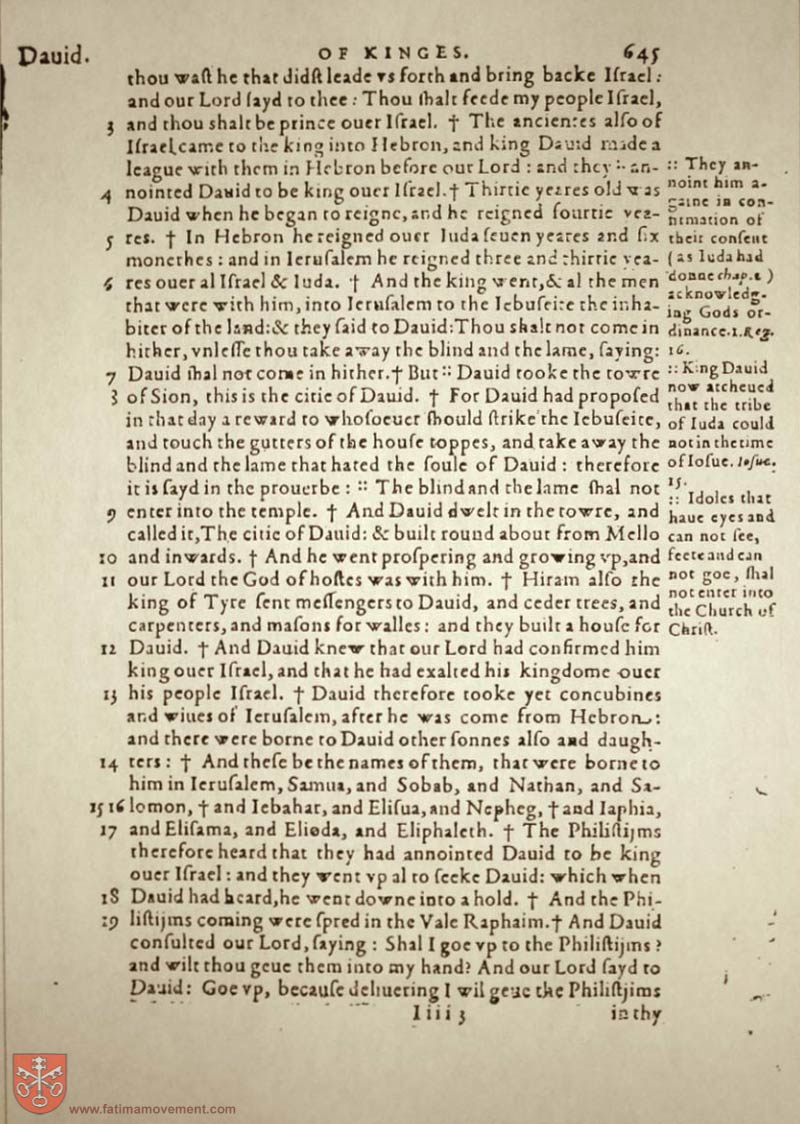 Dauid. OF KINGES. 645
thou waſt he that didſt leade vs forth and bring backe Iſrael:
and our Lord ſayd to thee: Thou ſhalt feede my people Iſrael,
3 and thou shalt be prince ouer Iſrael. † The ancientes alſo of
Iſrael came to the king into Hebron, and king Dauid made a
league with them in Hebron before our Lord: and they :: an-
4 nointed Dauid to be king ouer Iſrael. † Thirtie yeares old was
Dauid when he began to reigne, and he reigned fourtie yea-
5 res. † In Hebron he reigned ouer Iuda ſeuen yeares and ſix
monethes: and in Ieruſalem he reigned three and thirtie yea-
6 res ouer al Iſrael & Iuda. † And the king went, & al the men
that were with him, into Ieruſalem to the Iebuſeite the inha-
biter of the land: & they ſaid to Dauid: Thou shalt not come in
hither, vnleſſe thou take away the blind and the lame, ſaying:
7 Dauid ſhal not come in hither. † But :: Dauid tooke the towre
8 of Sion, this is the citie of Dauid. † For Dauid had propoſed
in that day a reward to whoſoeuer ſhould ſtrike the Iebuſeite,
and touch the gutters of the houſe toppes, and take away the
blind and the lame that hated the ſoule of Dauid: therefore
it is ſayd in the prouerbe: :: The blind and the lame ſhal not
9 enter into the temple. † And Dauid dwelt in the towre, and
called it, The citie of Dauid: & built round about from Mello
10 and inwards. † And he went proſpering and growing vp, and
11 our Lord the God of hoſtes was with him. † Hiram alſo the
king of Tyre ſent meſſengers to Dauid, and ceder trees, and
carpenters, and maſons for walles: and they built a houſe for
12 Dauid. † And Dauid knew that our Lord had confirmed him
king ouer Iſrael, and that he had exalted his kingdome ouer
13 his people Iſrael. † Dauid therefore tooke yet concubines
and wiues of Ieruſalem, after he was come from Hebron:
and there were borne to Dauid other ſonnes alſo and daugh-
14 ters: † And theſe be the names of them, that were borne to
him in Ieruſalem, Samua, and Sobab, and Nathan, and Sa-
15 16 lomon, † and Iebahar, and Eliſua, and Nepheg, † and Iaphia,
17 and Eliſama, and Elioda, and Eliphaleth. † The Philiſtijms
therefore heard that they had annointed Dauid to be king
ouer Iſrael: and they went vp al to ſeeke Dauid: which when
18 Dauid had heard, he went downe into a hold. † And the Phi-
19 liſtijms coming were ſpred in the Vale Raphaim. † And Dauid
conſulted our Lord, ſaying: Shal I goe vp to the Philiſtijms?
and wilt thou geue them into my hand? And our Lord ſayd to
Dauid: Goe vp, becauſe deliuering I wil geue the Philiſtjims
Iiii 3 in thy
:: They an-
noint him a-
gaine in con-
firmation of
their conſent
(as Iuda had
donne chap. 2)
acknowledg-
ing Gods or-
dinance. 1. Reg.
16.
:: King Dauid
now atcheued
that the tribe
of Iuda could
not in the time
of Ioſue. Ioſue.
15.
:: Idoles that
haue eyes and
can not ſee,
feete and can
not goe, ſhal
not enter into
the Church of
Chriſt.
www.fatimamovement.com